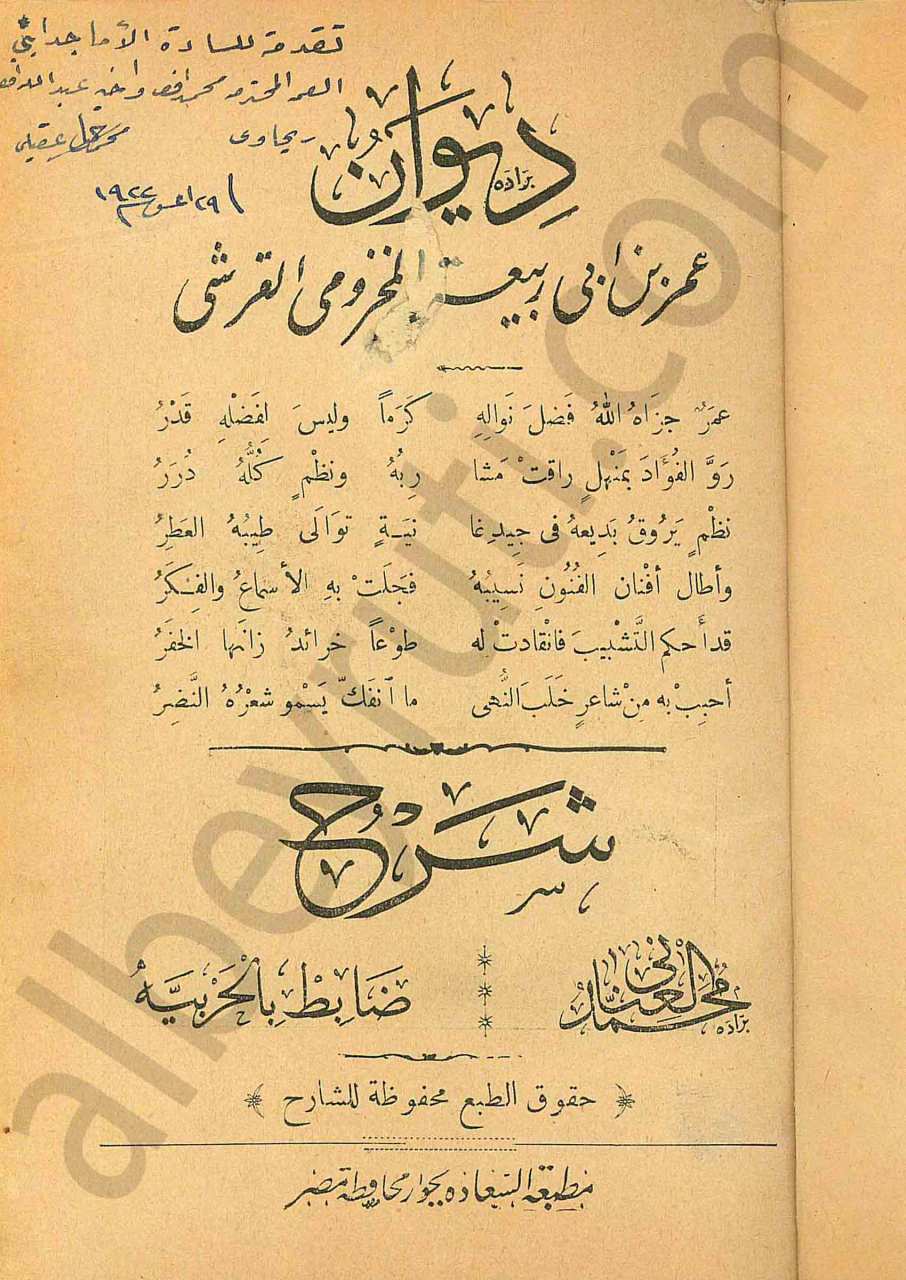 تقدمة للسادة الأماجد ابني
العم المحترم محمد واخيه عبد الله
ريحاوى
٢٩ اغسطس ١٩٢٢
ديوان
براده
عمر بن ابى ربيعة المخزومى القرشى
عمَرٌ جزَاهُ اللهُ فَضلَ نَوالِهِ كَرَماً وليسَ لفَضْلِهِ قَدْرُ
رَوَّ الفُؤَادَ بمَنْهلٍ راقتْ مَشا رِبُهُ ونظْمٍ كُلُّهُ دُرَرُ
نظْمٍ يَرُوقُ بَدِيعهُ فى جِيدِ غا نيَـةٍ توَالَى طِيبُهُ العَطِرُ
وأطال أفْنان الفنُونِ نَسِيبُهُ فجَلَتْ بهِ الأسماعُ والفِـكَرُ
قد أحكم التَّشْبيبَ فانْقادتْ له طوْعاً خرائدُ زانَها الخفَرُ
أحبِبْ به مِنْ شاعرٍ خَلَبَ النُّهى ما أنفَكَّ يَسْمو شعْرُهُ النَّضِرُ
شَرْحُ
محمد العنانى
براده
ضَابِطْ بِالْحَرْبيَّهْ
حقوق الطبع محفوظة للشارح
مطبعة السعاده بجوار محافظة مصر
albeyruti.com